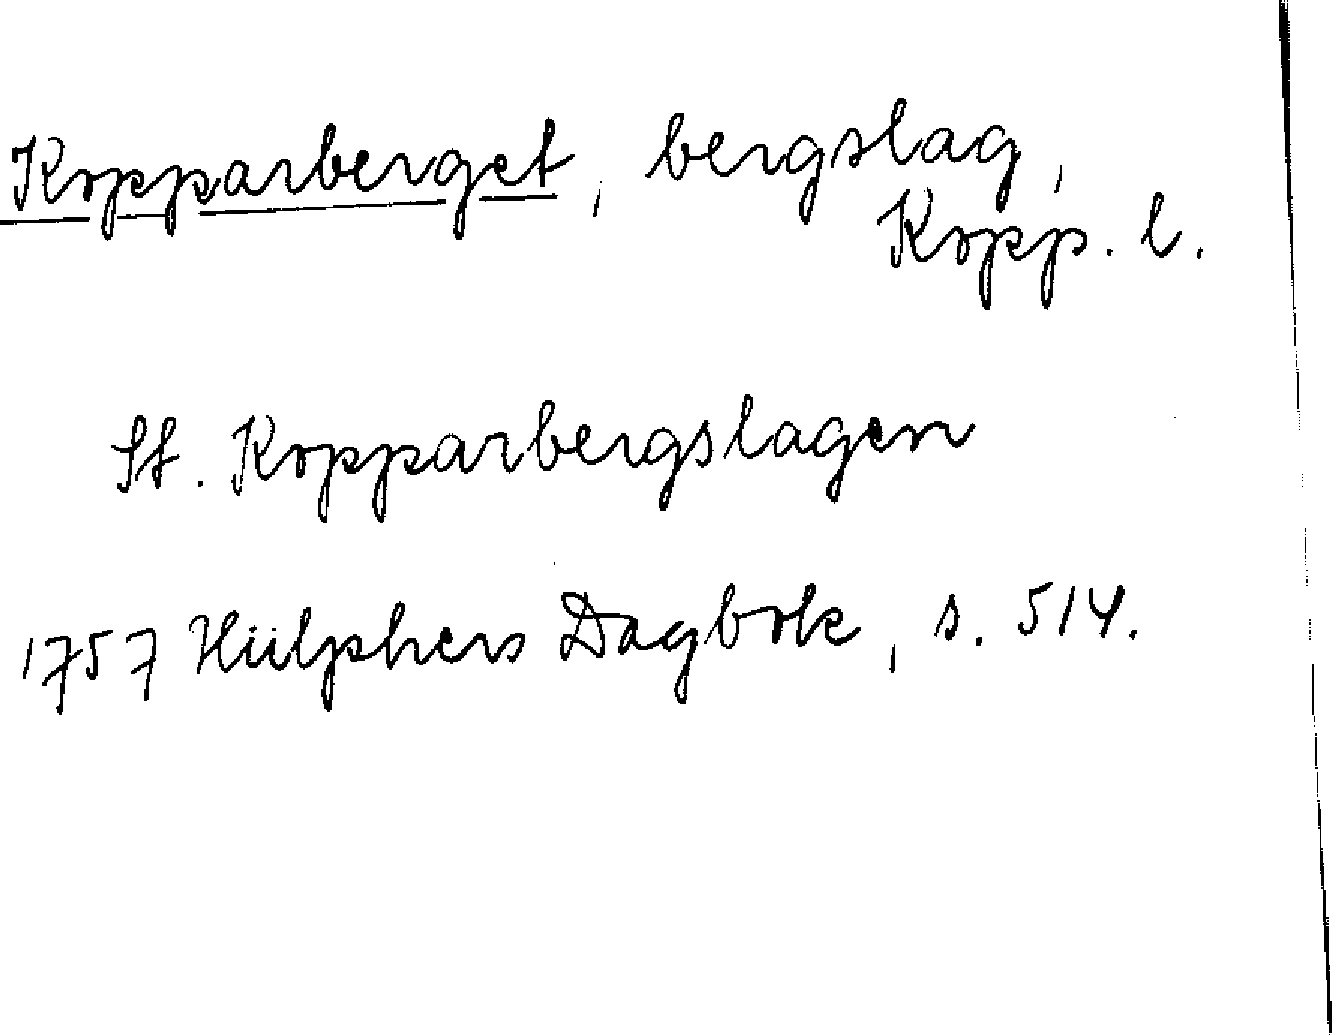 Kopparberget, bergslag,
Kopp. l.
St. Kopparbergslagen
1757 Hülphers Dagbok, s. 514.